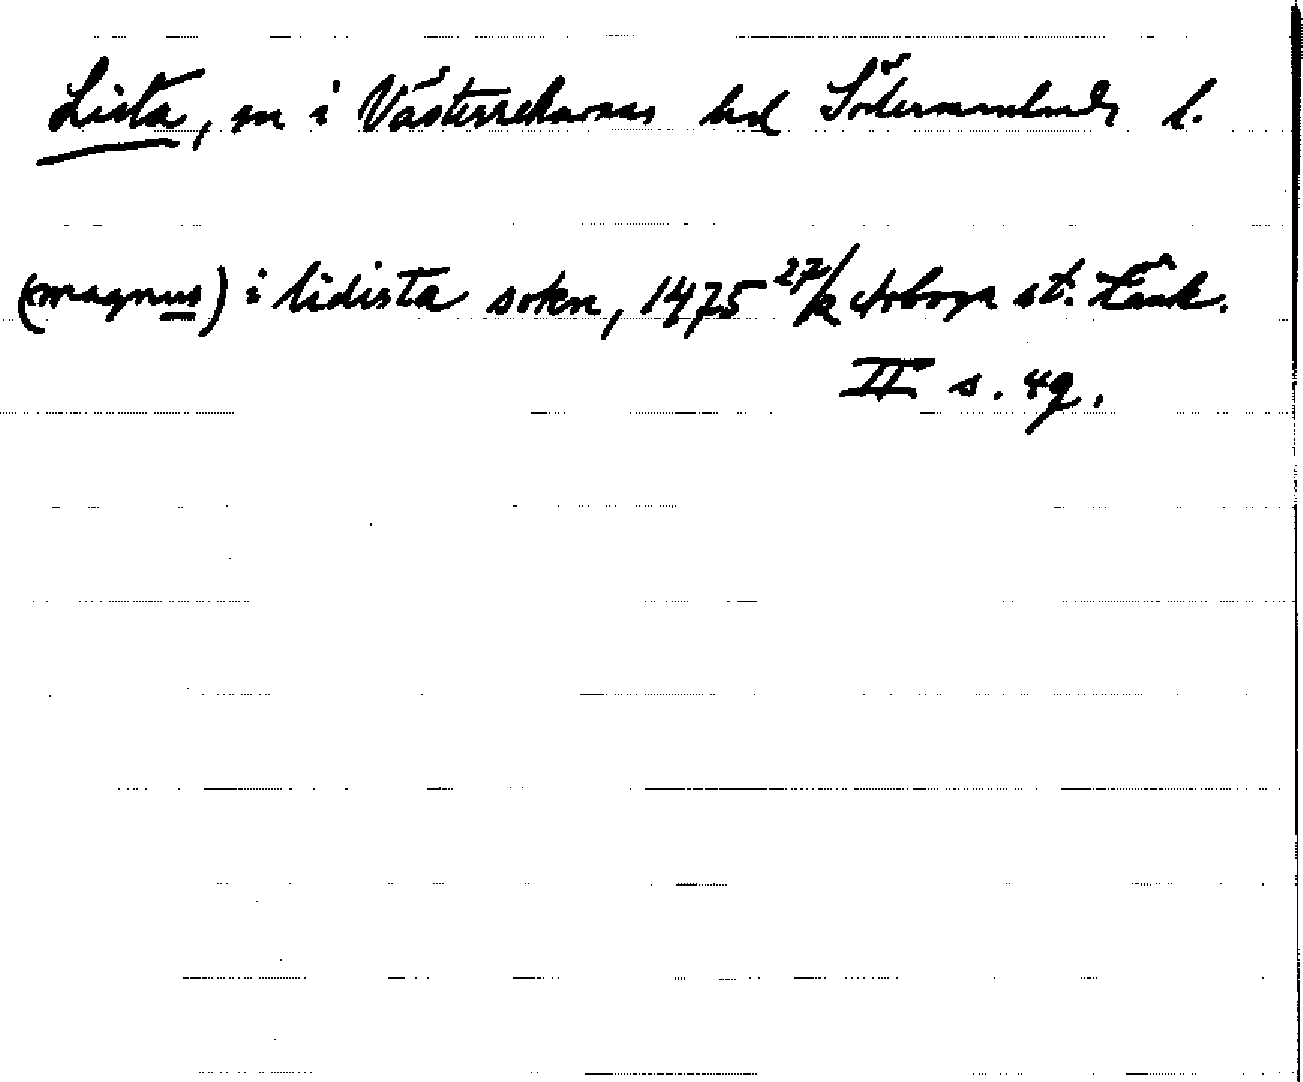 Lista, sn i Västerrekarnes hd Södermanlands l.
(magnus) i lidista sokn, 1475 27/2 Arboga st. Tänk.
II s. 49.